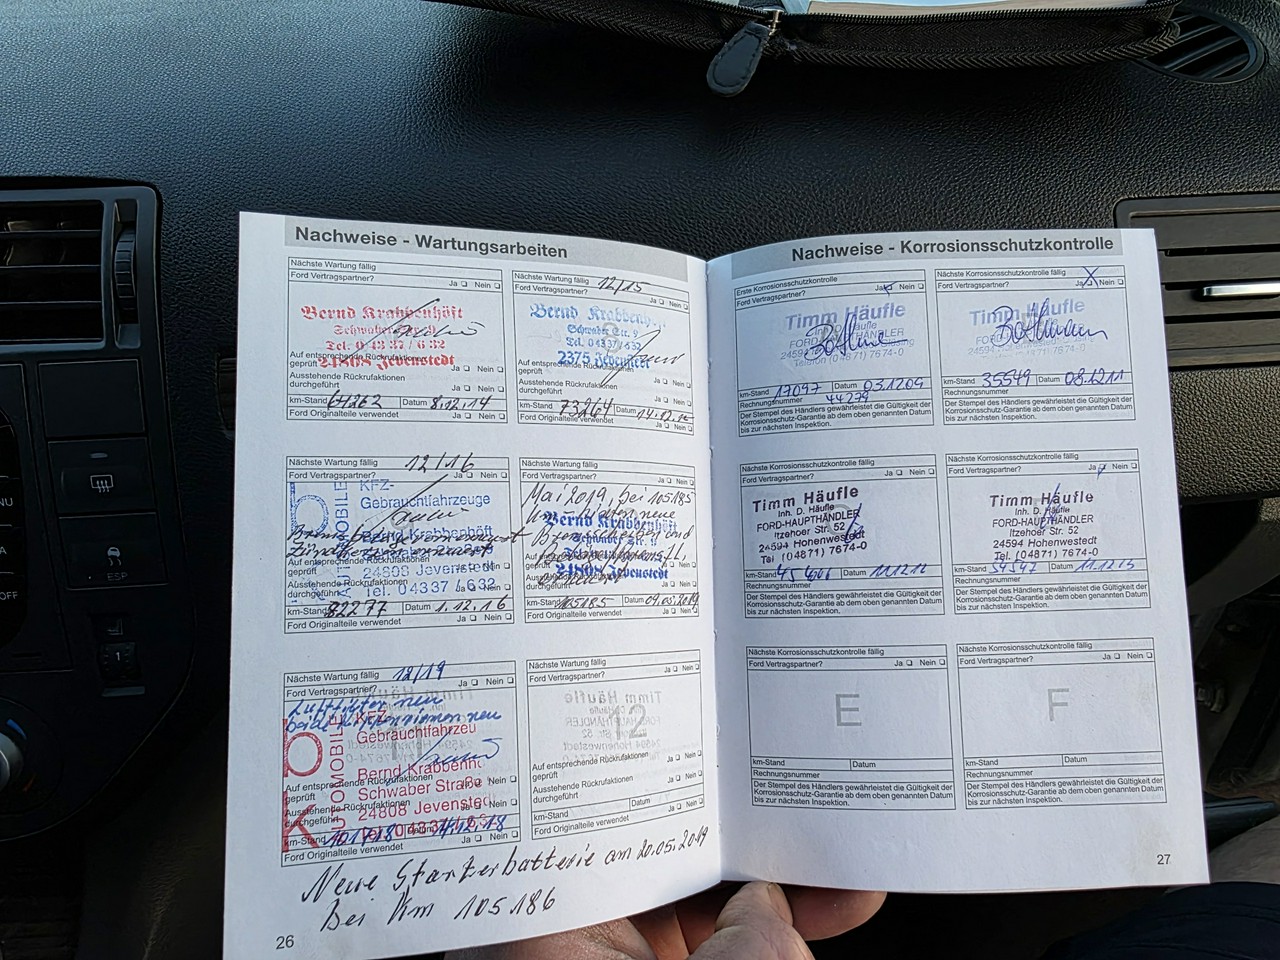 Nachweise - Wartungsarbeiten
Nächste Wartung fällig
Ford Vertragspartner? Ja Nein
Bernd Krabbenhöft
Schwaber Str. 9
Tel. 0 43 37 / 6 32
24808 Jevenstedt
Auf entsprechende Rückrufaktionen
geprüft Ja Nein
Ausstehende Rückrufaktionen
durchgeführt Ja Nein
km-Stand 64262 Datum 8.12.14
Ford Originalteile verwendet Ja Nein
Nächste Wartung fällig 12/15
Ford Vertragspartner? Ja Nein
Bernd Krabbenh
Schwaber Str. 9
Tel. 0 43 37 / 6 32
2375 Jevenstedt
Auf entsprechende Rückrufaktionen
geprüft Ja Nein
Ausstehende Rückrufaktionen
durchgeführt Ja Nein
km-Stand 73264 Datum 14.12.
Ford Originalteile verwendet Ja Nein
Nächste Wartung fällig 12/16
Ford Vertragspartner? Ja Nein
KFZ-
Gebrauchtfahrzeuge
Bernd Krabbenhöft
24808 Jevenstedt
Tel. 0 43 37 / 6 32
AUTOMOBILE
Auf entsprechende Rückrufaktionen
geprüft
Ausstehende Rückrufaktionen
durchgeführt
km-Stand 82277 Datum 1.12.16
Ford Originalteile verwendet Ja Nein
Nächste Wartung fällig
Ford Vertragspartner? Ja Nein
Mai 2019, bei 105185
Km hinten neue
Bremsscheiben und
Bernd Krabbenhöft
Schwaber Str. 9
24808 Jevenstedt
km-Stand 105185 Datum 09.05.2019
Ford Originalteile verwendet Ja Nein
Nächste Wartung fällig 12/19
Ford Vertragspartner? Ja Nein
Luftfilter neu
neu
KFZ-
Gebrauchtfahrzeu
Bernd Krabbenh
Schwaber Straße
24808 Jevensted
Tel. 0 4337 / 63
b
k
Auf entsprechende Rückrufaktionen
geprüft Ja Nein
Ausstehende Rückrufaktionen
durchgeführt Ja Nein
km-Stand 101718 Datum 4.12.18
Ford Originalteile verwendet Ja Nein
Nächste Wartung fällig
Ford Vertragspartner? Ja Nein
12
Auf entsprechende Rückrufaktionen
geprüft Ja Nein
Ausstehende Rückrufaktionen
durchgeführt Ja Nein
km-Stand Datum
Ford Originalteile verwendet Ja Nein
Neue Starterbatterie am 20.05.2019
bei Km 105186
26
Nachweise - Korrosionsschutzkontrolle
Erste Korrosionsschutzkontrolle
Ford Vertragspartner? Ja Nein
Timm Häufle
Inh. D. Häufle
FORD-HAUPTHÄNDLER
24594 Hohenwestedt
Telefon (04871) 7674-0
km-Stand 17097 Datum 03.12.09
Rechnungsnummer 44279
Der Stempel des Händlers gewährleistet die Gültigkeit der
Korrosionsschutz-Garantie ab dem oben genannten Datum
bis zur nächsten Inspektion.
Nächste Korrosionsschutzkontrolle fällig
Ford Vertragspartner? Ja Nein
Timm Häufle
km-Stand 35549 Datum 08.12.11
Rechnungsnummer
Der Stempel des Händlers gewährleistet die Gültigkeit der
Korrosionsschutz-Garantie ab dem oben genannten Datum
bis zur nächsten Inspektion.
Nächste Korrosionsschutzkontrolle fällig
Ford Vertragspartner? Ja Nein
Timm Häufle
Inh. D. Häufle
FORD-HAUPTHÄNDLER
Itzehoer Str. 52
24594 Hohenwestedt
Tel (04871) 7674-0
km-Stand Datum 11.12.12
Rechnungsnummer
Der Stempel des Händlers gewährleistet die Gültigkeit der
Korrosionsschutz-Garantie ab dem oben genannten Datum
bis zur nächsten Inspektion.
Nächste Korrosionsschutzkontrolle fällig
Ford Vertragspartner? Ja Nein
Timm Häufle
Inh. D. Häufle
FORD-HAUPTHÄNDLER
Itzehoer Str. 52
24594 Hohenwestedt
Tel. (04871) 7674-0
km-Stand 54547 Datum 11.12.13
Rechnungsnummer
Der Stempel des Händlers gewährleistet die Gültigkeit der
Korrosionsschutz-Garantie ab dem oben genannten Datum
bis zur nächsten Inspektion.
Nächste Korrosionsschutzkontrolle fällig
Ford Vertragspartner? Ja Nein
E
km-Stand Datum
Rechnungsnummer
Der Stempel des Händlers gewährleistet die Gültigkeit der
Korrosionsschutz-Garantie ab dem oben genannten Datum
bis zur nächsten Inspektion.
Nächste Korrosionsschutzkontrolle fällig
Ford Vertragspartner? Ja Nein
F
km-Stand Datum
Rechnungsnummer
Der Stempel des Händlers gewährleistet die Gültigkeit der
Korrosionsschutz-Garantie ab dem oben genannten Datum
bis zur nächsten Inspektion.
27
ESP
OFF
1